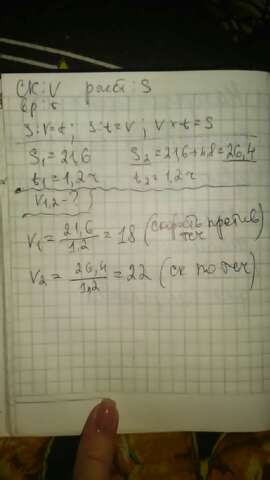 СК: V расст: S
вр: t
S:V=t; S:t=V; V×t=S
S₁=21,6 S₂=21,6+4,8=26,4
t₁=1,2ч t₂=1,2ч
V₁,₂-?
V₁=21,6/1,2=18 (скорость против теч)
V₂=26,4/1,2=22 (ск по теч)